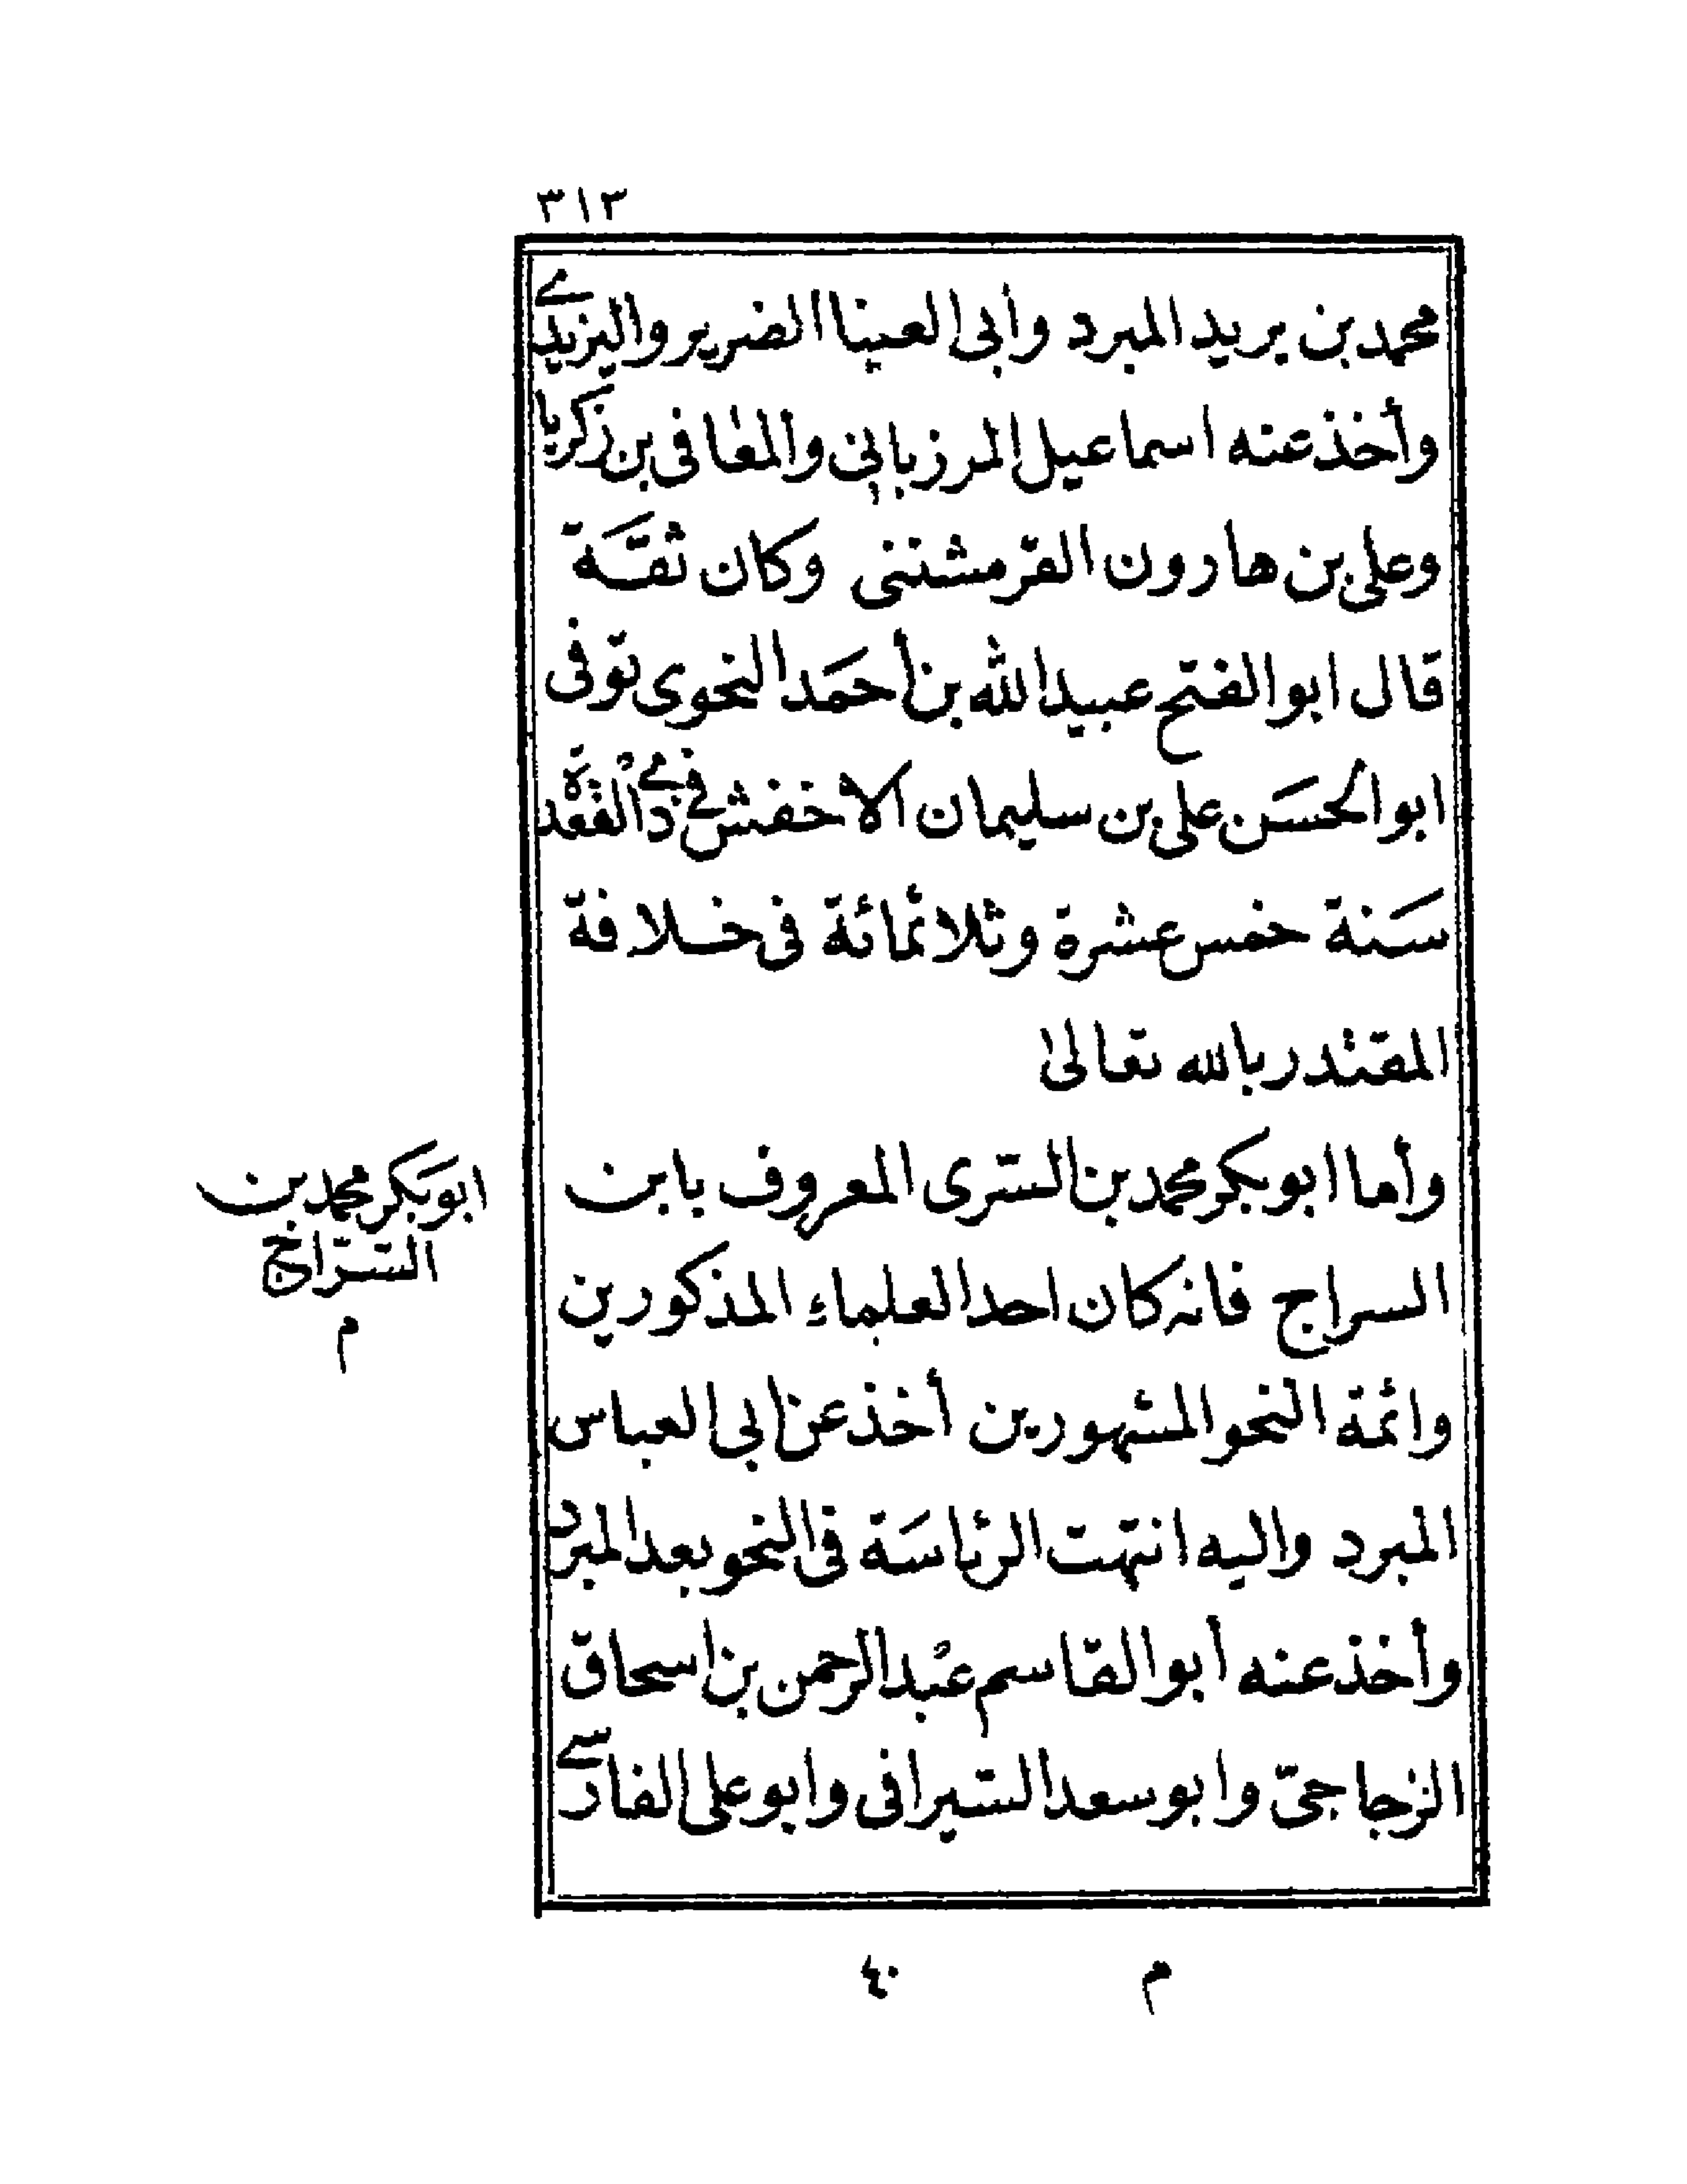 ٣١٣
محمد بن يريد المبرد وأبى العينا الضرير واليزيدى
وأخذ عنه اسماعيل المرزبانى والمعافى بن زكريا
وعلى بن هارون القرمشتنى وكان ثقة
قال ابو الفتح عبيد الله بن أحمَد النحوى توفى
ابو الحسَن على بن سليمان الاخفش فى ذى القعدة
سَنة خمس عشرة وثلاثمائة فى خلافة
المقتدر بالله تعالى
وأما ابو بكر محمد بن السّرى المعروف بابن
السراج فانه كان احد العلماء المذكورين
وائمة النحو المشهورين أخذ عن ابى العباس
المبرد واليه انتهت الرئاسَة فى النحو بعد المبرد
وأخذ عنه أبو القاسم عبد الرحمن بن اسحاق
الزجاجىّ وابو سعد السّيرافى وابو على الفارسى
ابو بكر محمد بن
السّرّاج
م
م ٤٠